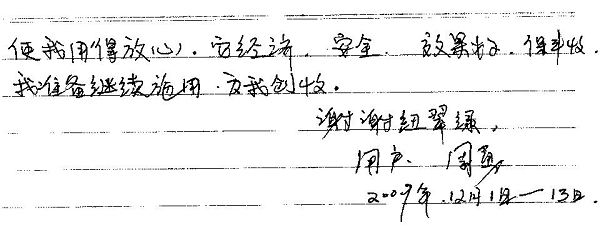 使我用得放心。它经济、安全、效果好、保丰收。
我准备继续施用、为我创收。
谢谢纽翠绿。
用户、周
2009年.12月1日—13日.